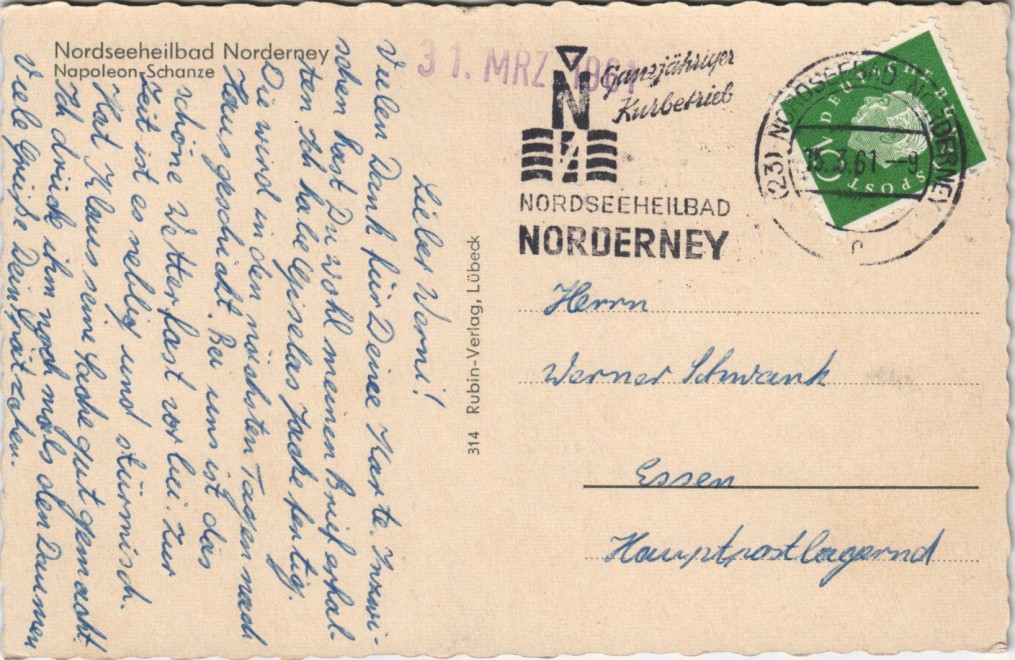 Nordseeheilbad Norderney
Napoleon-Schanze
31. MRZ. 1961
Ganzjähriger
Kurbetrieb
N
NORDSEEHEILBAD
NORDERNEY
(23) NORDSEEBAD NORDERNEY
15.3.61--9
c
DEUTSCHE BUNDESPOST
314 Rubin-Verlag, Lübeck
Lieber Werni!
Vielen Dank für Deine Karte. Inzwi-
schen hast Du wohl meinen Brief erhal-
ten. Ich habe Giselas Jacke fertig.
Die wird in den nächsten Tagen nach
Haus geschickt. Bei uns ist das
schöne Wetter fast vorbei. Zur
Zeit ist es neblig und stürmisch.
Hat Klaus seine Sache gut gemacht.
Ich drück ihm noch mals den Daumen
Viele Grüße Dein Spätzchen.
Herrn
Werner Schwank
Essen
Hauptpostlagernd